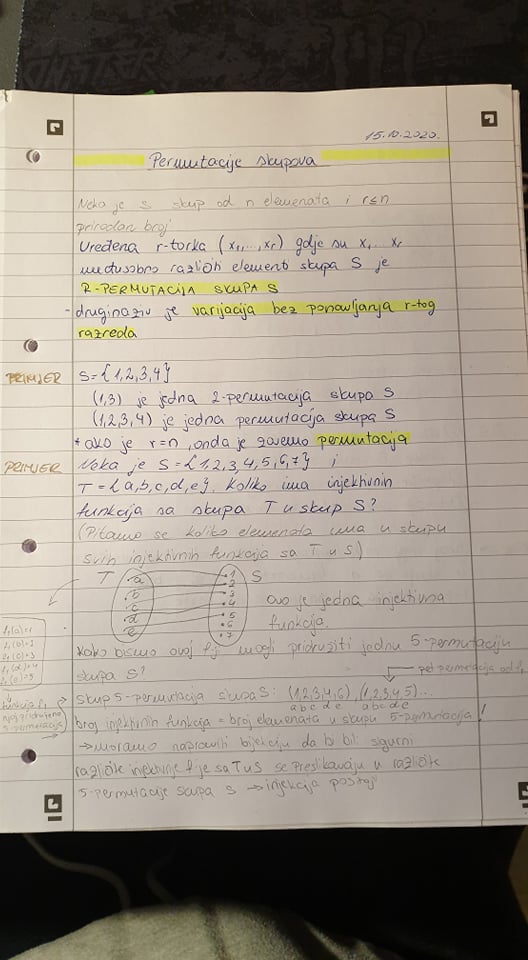 15.10.2020.
Permutacije skupova
Neka je S skup od n elemenata i r≤n
prirodan broj
Uređena r-torka (x₁,...,xᵣ) gdje su x₁... xᵣ
međusobno različiti elementi skupa S je
R-PERMUTACIJA SKUPA S
-drugi naziv je varijacija bez ponavljanja r-tog
razreda
PRIMJER S={1,2,3,4}
(1,3) je jedna 2-permutacija skupa S
(1,2,3,4) je jedna permutacija skupa S
* ako je r=n, onda je zovemo permutacija
PRIMJER Neka je S={1,2,3,4,5,6,7} i
T={a,b,c,d,e}. Koliko ima injektivnih
funkcija sa skupa T u skup S?
(Pitamo se koliko elemenata ima u skupu
svih injektivnih funkcija sa T u S)
T a b c d e 1 2 3 4 5 6 7 S
ovo je jedna injektivna
funkcija.
Kako bismo ovoj f-ji mogli pridružiti jednu 5-permutaciju
skupa S?
skup 5-permutacija skupa S: (1,2,3,4,6), (1,2,3,4,5)...
a b c d e a b c d e
broj injektivnih funkcija = broj elemenata u skupu 5-permutacija!
→moramo napraviti bijekciju da bi bili sigurni
različite injektivne f-je sa T u S se preslikavaju u različite
5-permutacije skupa S → injekcija postoji